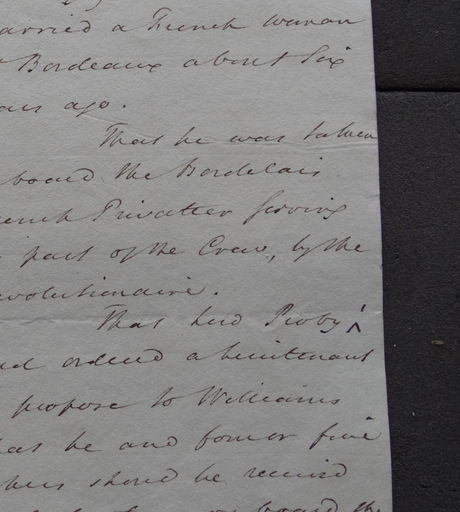 arried a French woman
Bordeaux about Six
ears ago.
That he was taken
board the Bordelais
rench Privatier serving
part of the Crew, by the
evolutionaire.
That Lord Proby
ad ordered a Lieutenant
propose to Williams
hat he and former five
thers should be received
on board the